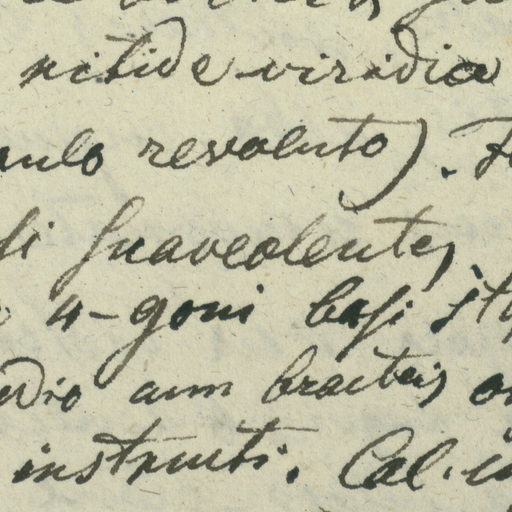 nitide viridia
aulo revoluto). F
si suaveolentes
4-goni basi sty
edio cum bracteis
instructi. Cal.